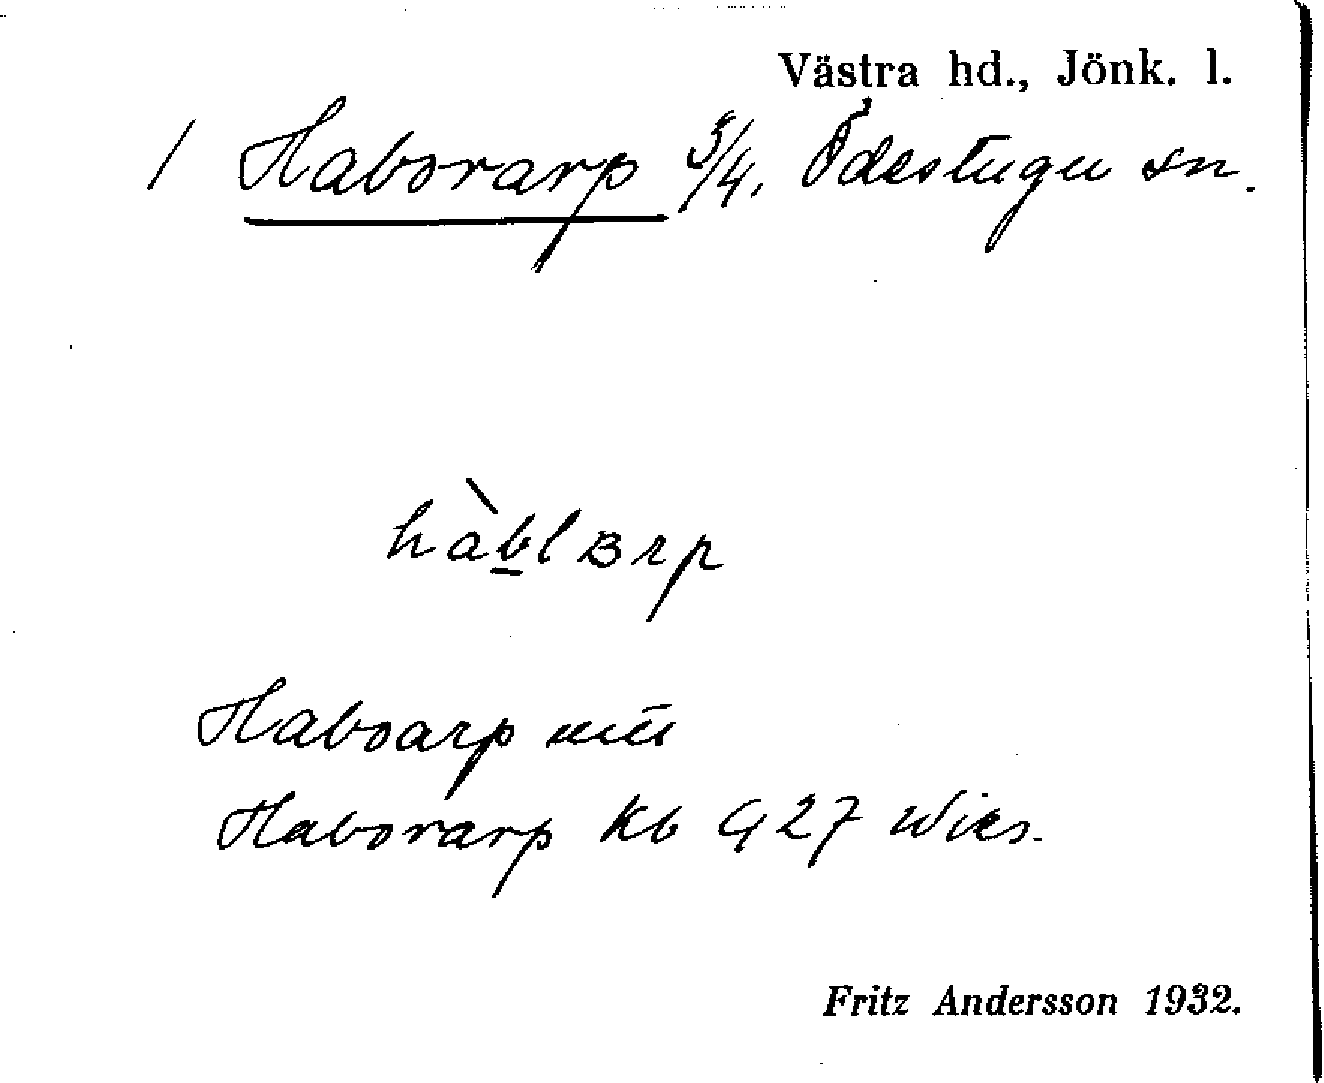 Västra hd., Jönk. l.
/ Haborarp 3/4, Ödestugu sn.
hàb̲lʙrp
Haboarp
Haborarp Kb G 27 Wies.
Fritz Andersson 1932.